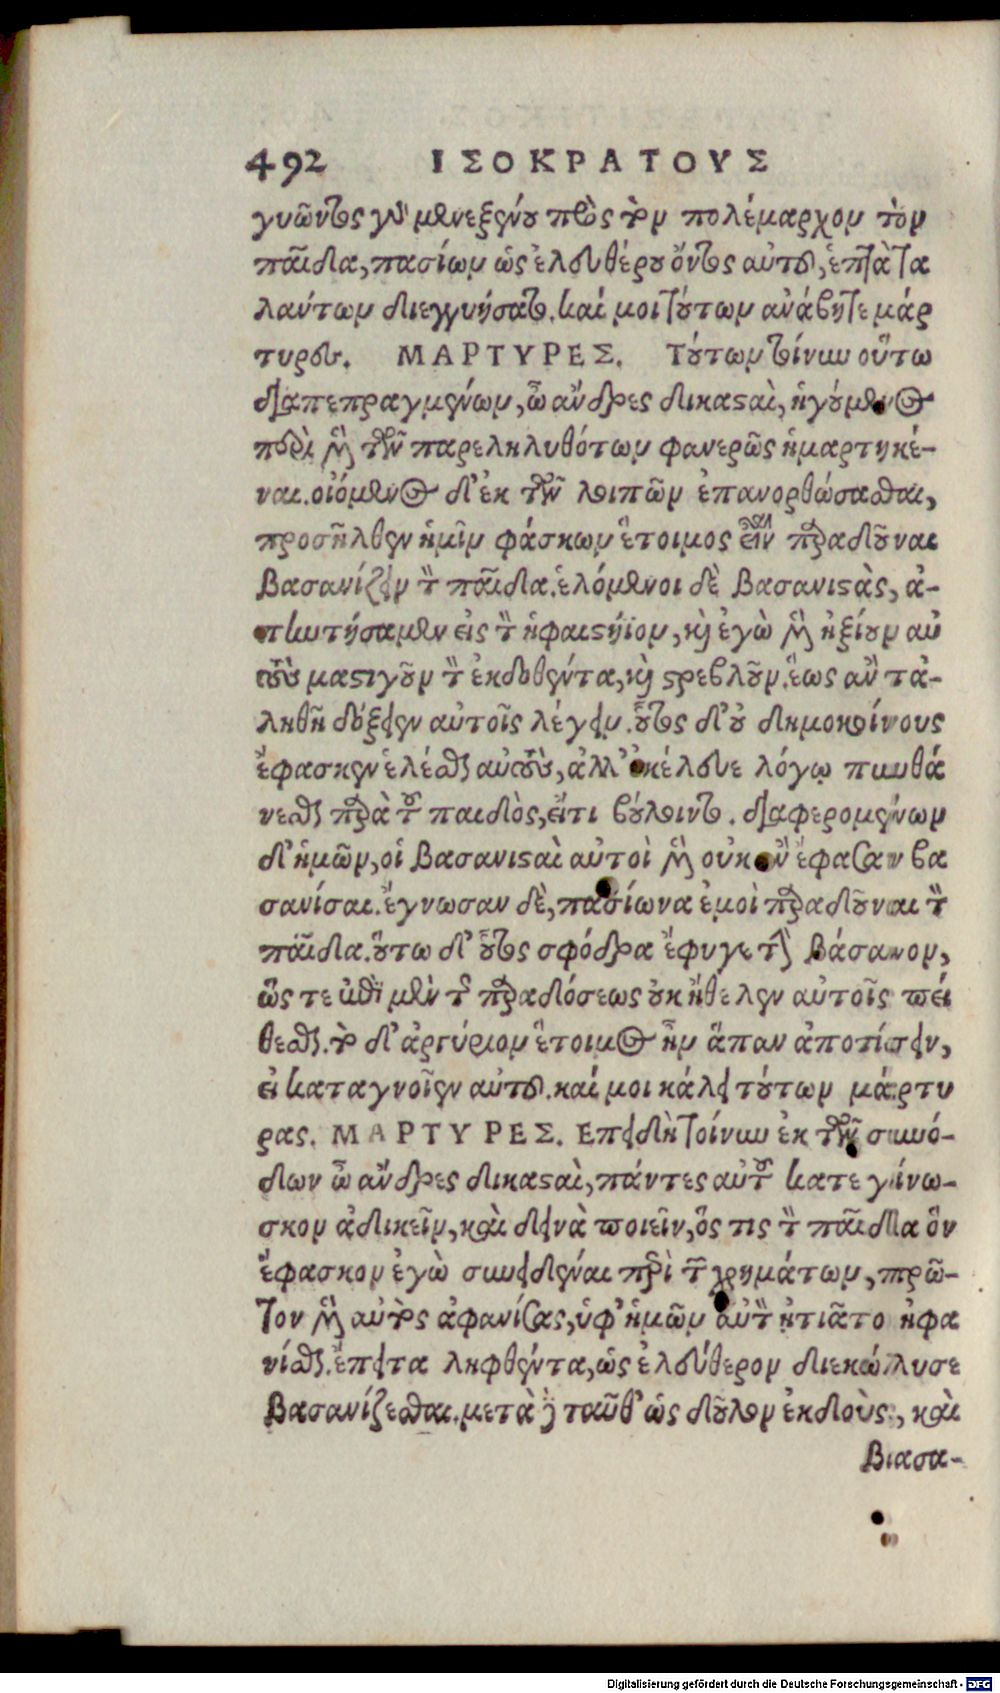 492 ΙΣΟΚΡΑΤΟΥΣ
γυῶντος γὰρ μενεξένου πρὸς τὸν πολέμαρχον τὸν
παῖδα, πασίων ὡς ἐλευθέρου ὄντος αὐτὸν, ἑπτὰ τα
λάντων διεγγυήσατο. καί μοι τούτων ἀνάβητε μάρ
τυρες. ΜΑΡΤΥΡΕΣ. Τούτων τοίνυν οὕτω
διαπεπραγμένων, ὦ ἄνδρες δικασαὶ, ἡγούμενος
περὶ μὲν τῶν παρεληλυθότων φανερῶς ἡμαρτηκέ-
ναι. οἰόμενος δ' ἐκ τῶν λοιπῶν ἐπανορθώσασθαι,
προσῆλθεν ἡμῖν φάσκων ἕτοιμος εἶναι παραδοῦναι
βασανίζειν τὸν παῖδα. ἑλόμενοι δὲ βασανιστὰς, ἀ-
πηντήσαμεν εἰς τὸ ἡφαιστήϊον, καὶ ἐγὼ μὲν ἠξίουν αὐ
τοὺς μαστιγοῦν τὸν ἐκδοθέντα, καὶ στρεβλοῦν. ἕως ἂν τἀ-
ληθῆ δόξειεν αὐτοῖς λέγειν. οὗτος δ' οὐ δημοκοίνους
ἔφασκεν ἑλέσθαι αὐτοὺς, ἀλλ' ἐκέλευε λόγῳ πυνθά
νεσθαι παρὰ τοῦ παιδὸς, εἴ τι βούλοιντο. διαφερομένων
δ' ἡμῶν, οἱ βασανισταὶ αὐτοὶ μὲν οὐκ ἂν ἔφασαν βα
σανίσαι. ἔγνωσαν δὲ, πασίωνα ἐμοὶ παραδοῦναι τὸν
παῖδα. οὕτω δ' οὗτος σφόδρα ἔφυγε τὴν βάσανον,
ὥς τε περὶ μὲν τῆς παραδόσεως οὐκ ἤθελεν αὐτοῖς πεί
θεσθαι. τὸ δ' ἀργύριον ἕτοιμος ἦν ἅπαν ἀποτίσειν,
εἰ καταγνοῖεν αὐτοῦ. καί μοι κάλει τούτων μάρτυ
ρας. ΜΑΡΤΥΡΕΣ. Ἐπειδὴ τοίνυν ἐκ τῶν συνό-
δων ὦ ἄνδρες δικασταὶ, πάντες αὐτοῦ κατεγίνω-
σκον ἀδικεῖν, καὶ δεινὰ ποιεῖν, ὅς τις τὸν παῖδα ὃν
ἔφασκον ἐγὼ συνειδέναι περὶ τῶν χρημάτων, πρῶ-
τον μὲν αὐτὸς ἀφανίσας, ὑφ' ἡμῶν αὐτὸν ᾐτιᾶτο ἠφα
νίσθαι. ἔπειτα ληφθέντα, ὡς ἐλεύθερον διεκώλυσε
βασανίζεσθαι. μετὰ δὲ ταῦθ' ὡς δοῦλον ἐκδοὺς, καὶ
βιασα-
Digitalisierung gefördert durch die Deutsche Forschungsgemeinschaft - DFG